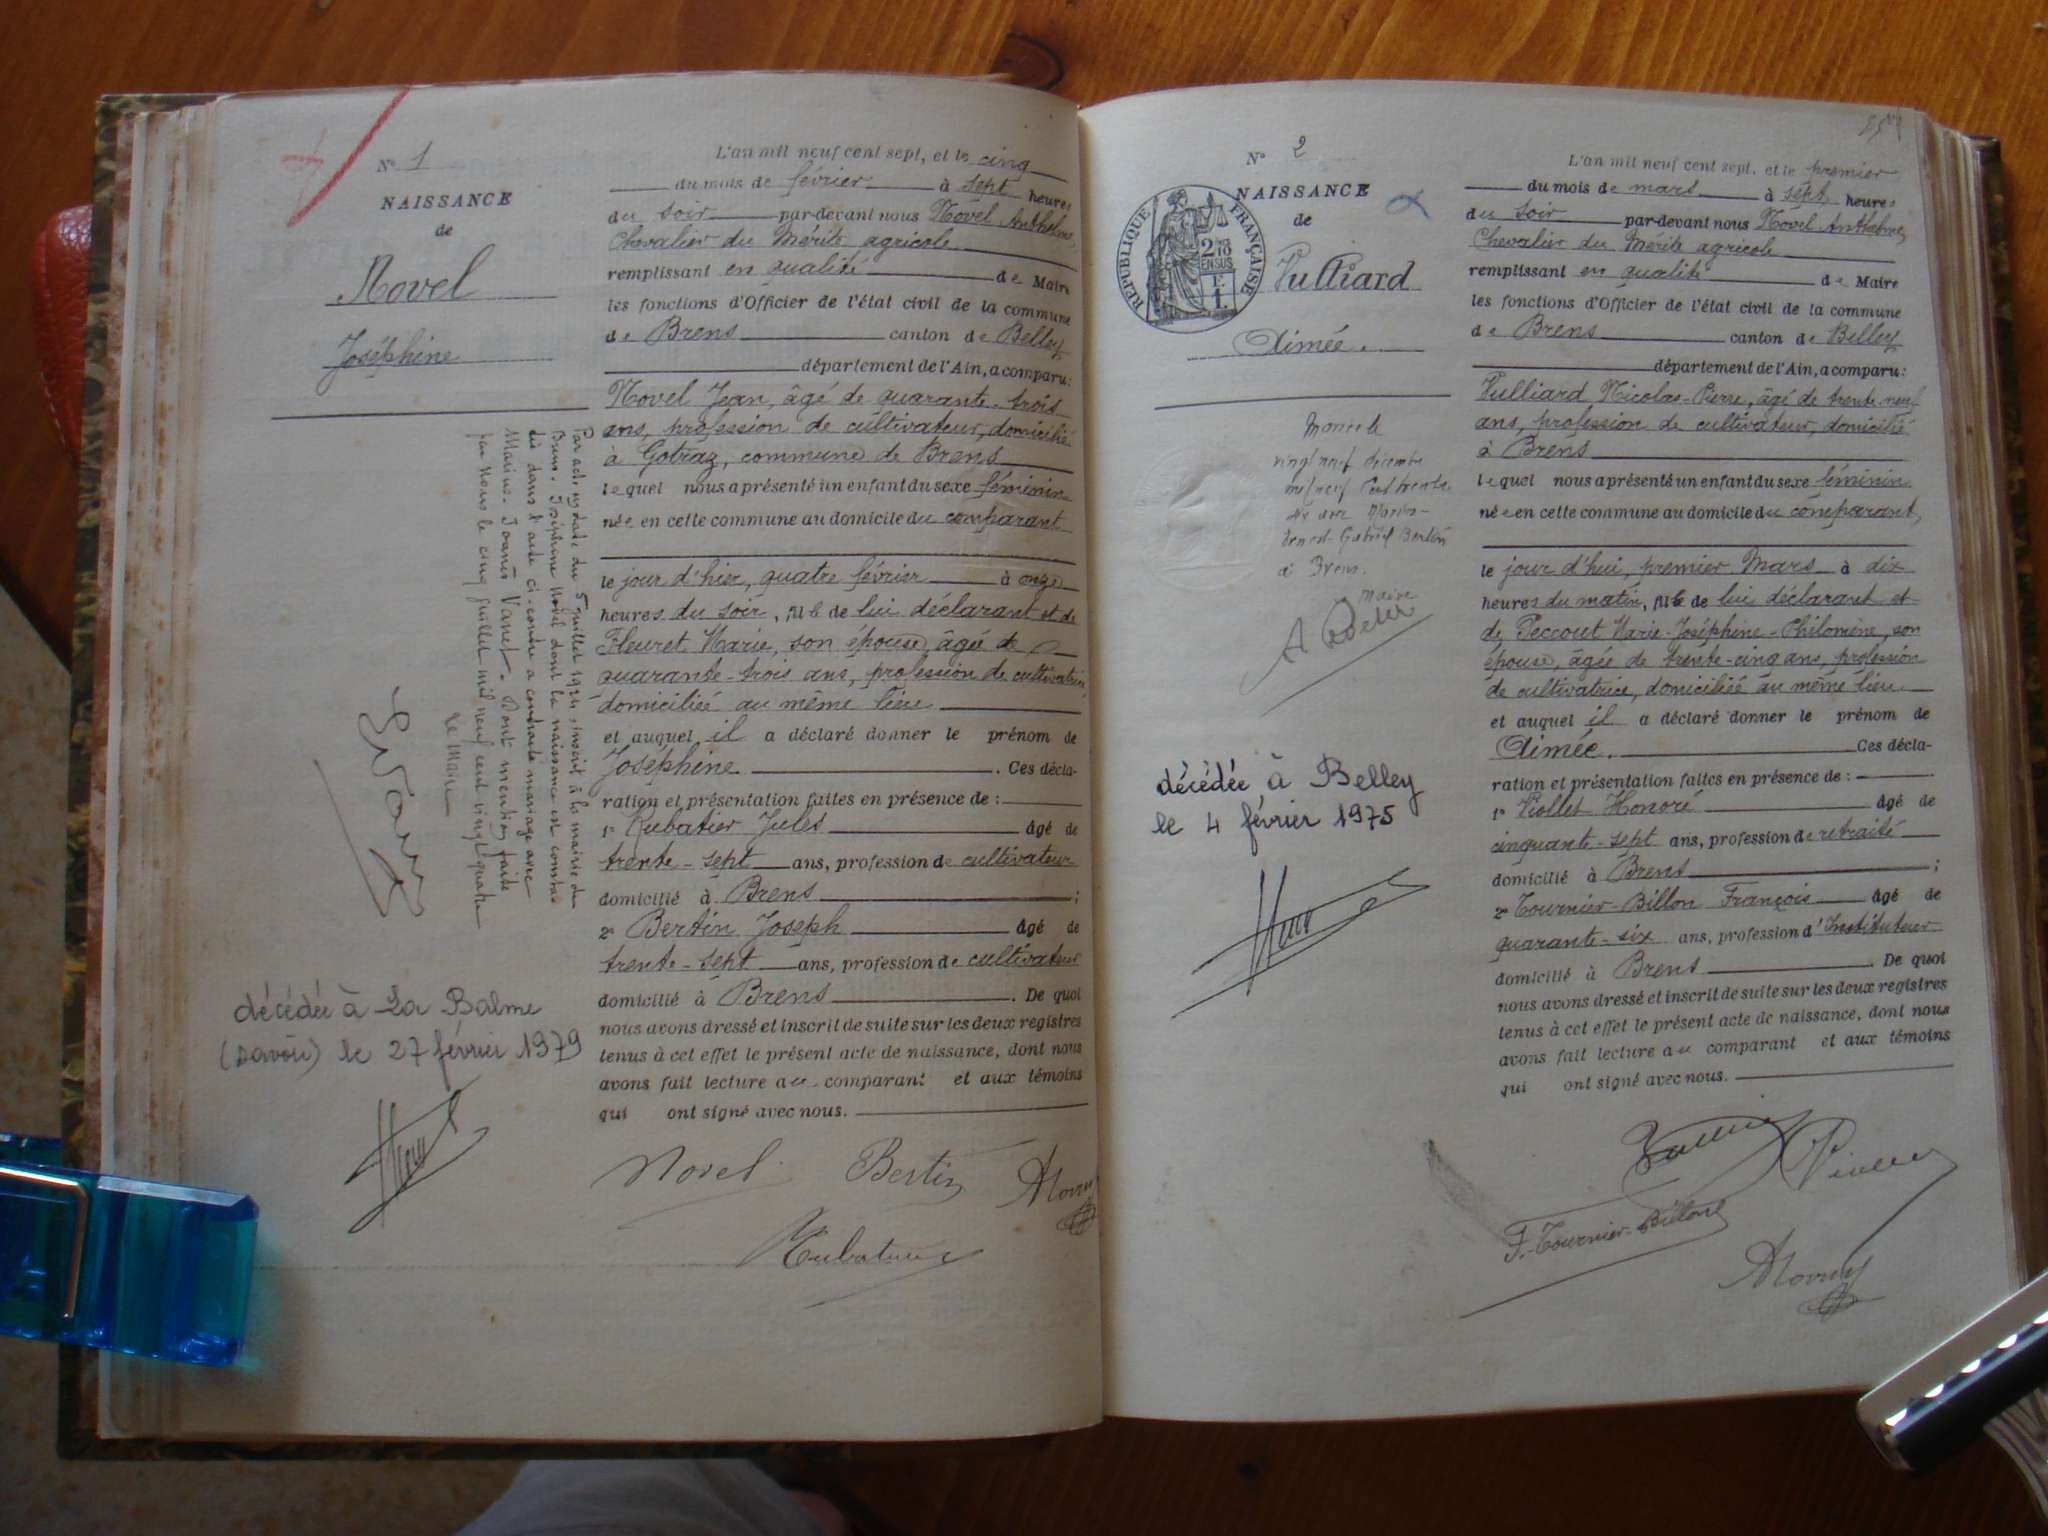 N° 1
NAISSANCE
de
Novel
Joséphine
Par acte en date du 5 juillet 1924, inscrit à la mairie de
Brens. Joséphine Novel dont la naissance est consta-
tée dans l'acte ci-contre a contracté mariage avec
Marius. Joanès Vanet. Dont mention faite
par Nous le cinq juillet mil neuf cent vingt quatre
Le Maire
décédée à La Balme
(Savoie) le 27 février 1979
L'an mil neuf cent sept, et le cinq
du mois de février à sept heures
du soir par-devant nous Novel Anthelme,
Chevalier du Mérite agricole
remplissant en qualité de Maire
les fonctions d'Officier de l'état civil de la commune
de Brens canton de Belley
département de l'Ain, a comparu:
Novel Jean, âgé de quarante-trois
ans, profession de cultivateur, domicilié
à Gotraz, commune de Brens
lequel nous a présenté un enfant du sexe féminin
née en cette commune au domicile du comparant
le jour d'hier, quatre février à onze
heures du soir, fille de lui déclarant et de
Fleuret Marie, son épouse, âgée de
quarante-trois ans, profession de cultivatrice,
domiciliée au même lieu
et auquel il a déclaré donner le prénom de
Joséphine. Ces décla-
ration et présentation faites en présence de :
1° Rubatier Jules âgé de
trente-sept ans, profession de cultivateur
domicilié à Brens ;
2° Bertin Joseph âgé de
trente-sept ans, profession de cultivateur
domicilié à Brens. De quoi
nous avons dressé et inscrit de suite sur les deux registres
tenus à cet effet le présent acte de naissance, dont nous
avons fait lecture au comparant et aux témoins
qui ont signé avec nous.
Novel Bertin
N° 2
NAISSANCE
de
Vulliard
Aimée.
RÉPUBLIQUE FRANÇAISE
2/10 EN SUS
Mariée le
vingt neuf décembre
mil neuf cent trente
avec Marius-
Ernest-Gabriel Bertin
à Brens.
Maire
décédée à Belley
le 4 février 1975
L'an mil neuf cent sept, et le premier
du mois de mars à sept heures
du soir par-devant nous Novel Anthelme,
Chevalier du Mérite agricole
remplissant en qualité de Maire
les fonctions d'Officier de l'état civil de la commune
de Brens canton de Belley
département de l'Ain, a comparu:
Vulliard Nicolas-Pierre, âgé de trente-neuf
ans, profession de cultivateur, domicilié
à Brens
lequel nous a présenté un enfant du sexe féminin
née en cette commune au domicile du comparant,
le jour d'hui, premier Mars à dix
heures du matin, fille de lui déclarant et
de Peccout Marie-Joséphine-Philomène, son
épouse, âgée de trente-cinq ans, profession
de cultivatrice, domiciliée au même lieu.
et auquel il a déclaré donner le prénom de
Aimée. Ces décla-
ration et présentation faites en présence de :
1° Viollet Honoré âgé de
cinquante-sept ans, profession de retraité
domicilié à Brens ;
2° Tournier-Billon François âgé de
quarante-six ans, profession d'Instituteur
domicilié à Brens. De quoi
nous avons dressé et inscrit de suite sur les deux registres
tenus à cet effet le présent acte de naissance, dont nous
avons fait lecture au comparant et aux témoins
qui ont signé avec nous.
F. Tournier-Billon